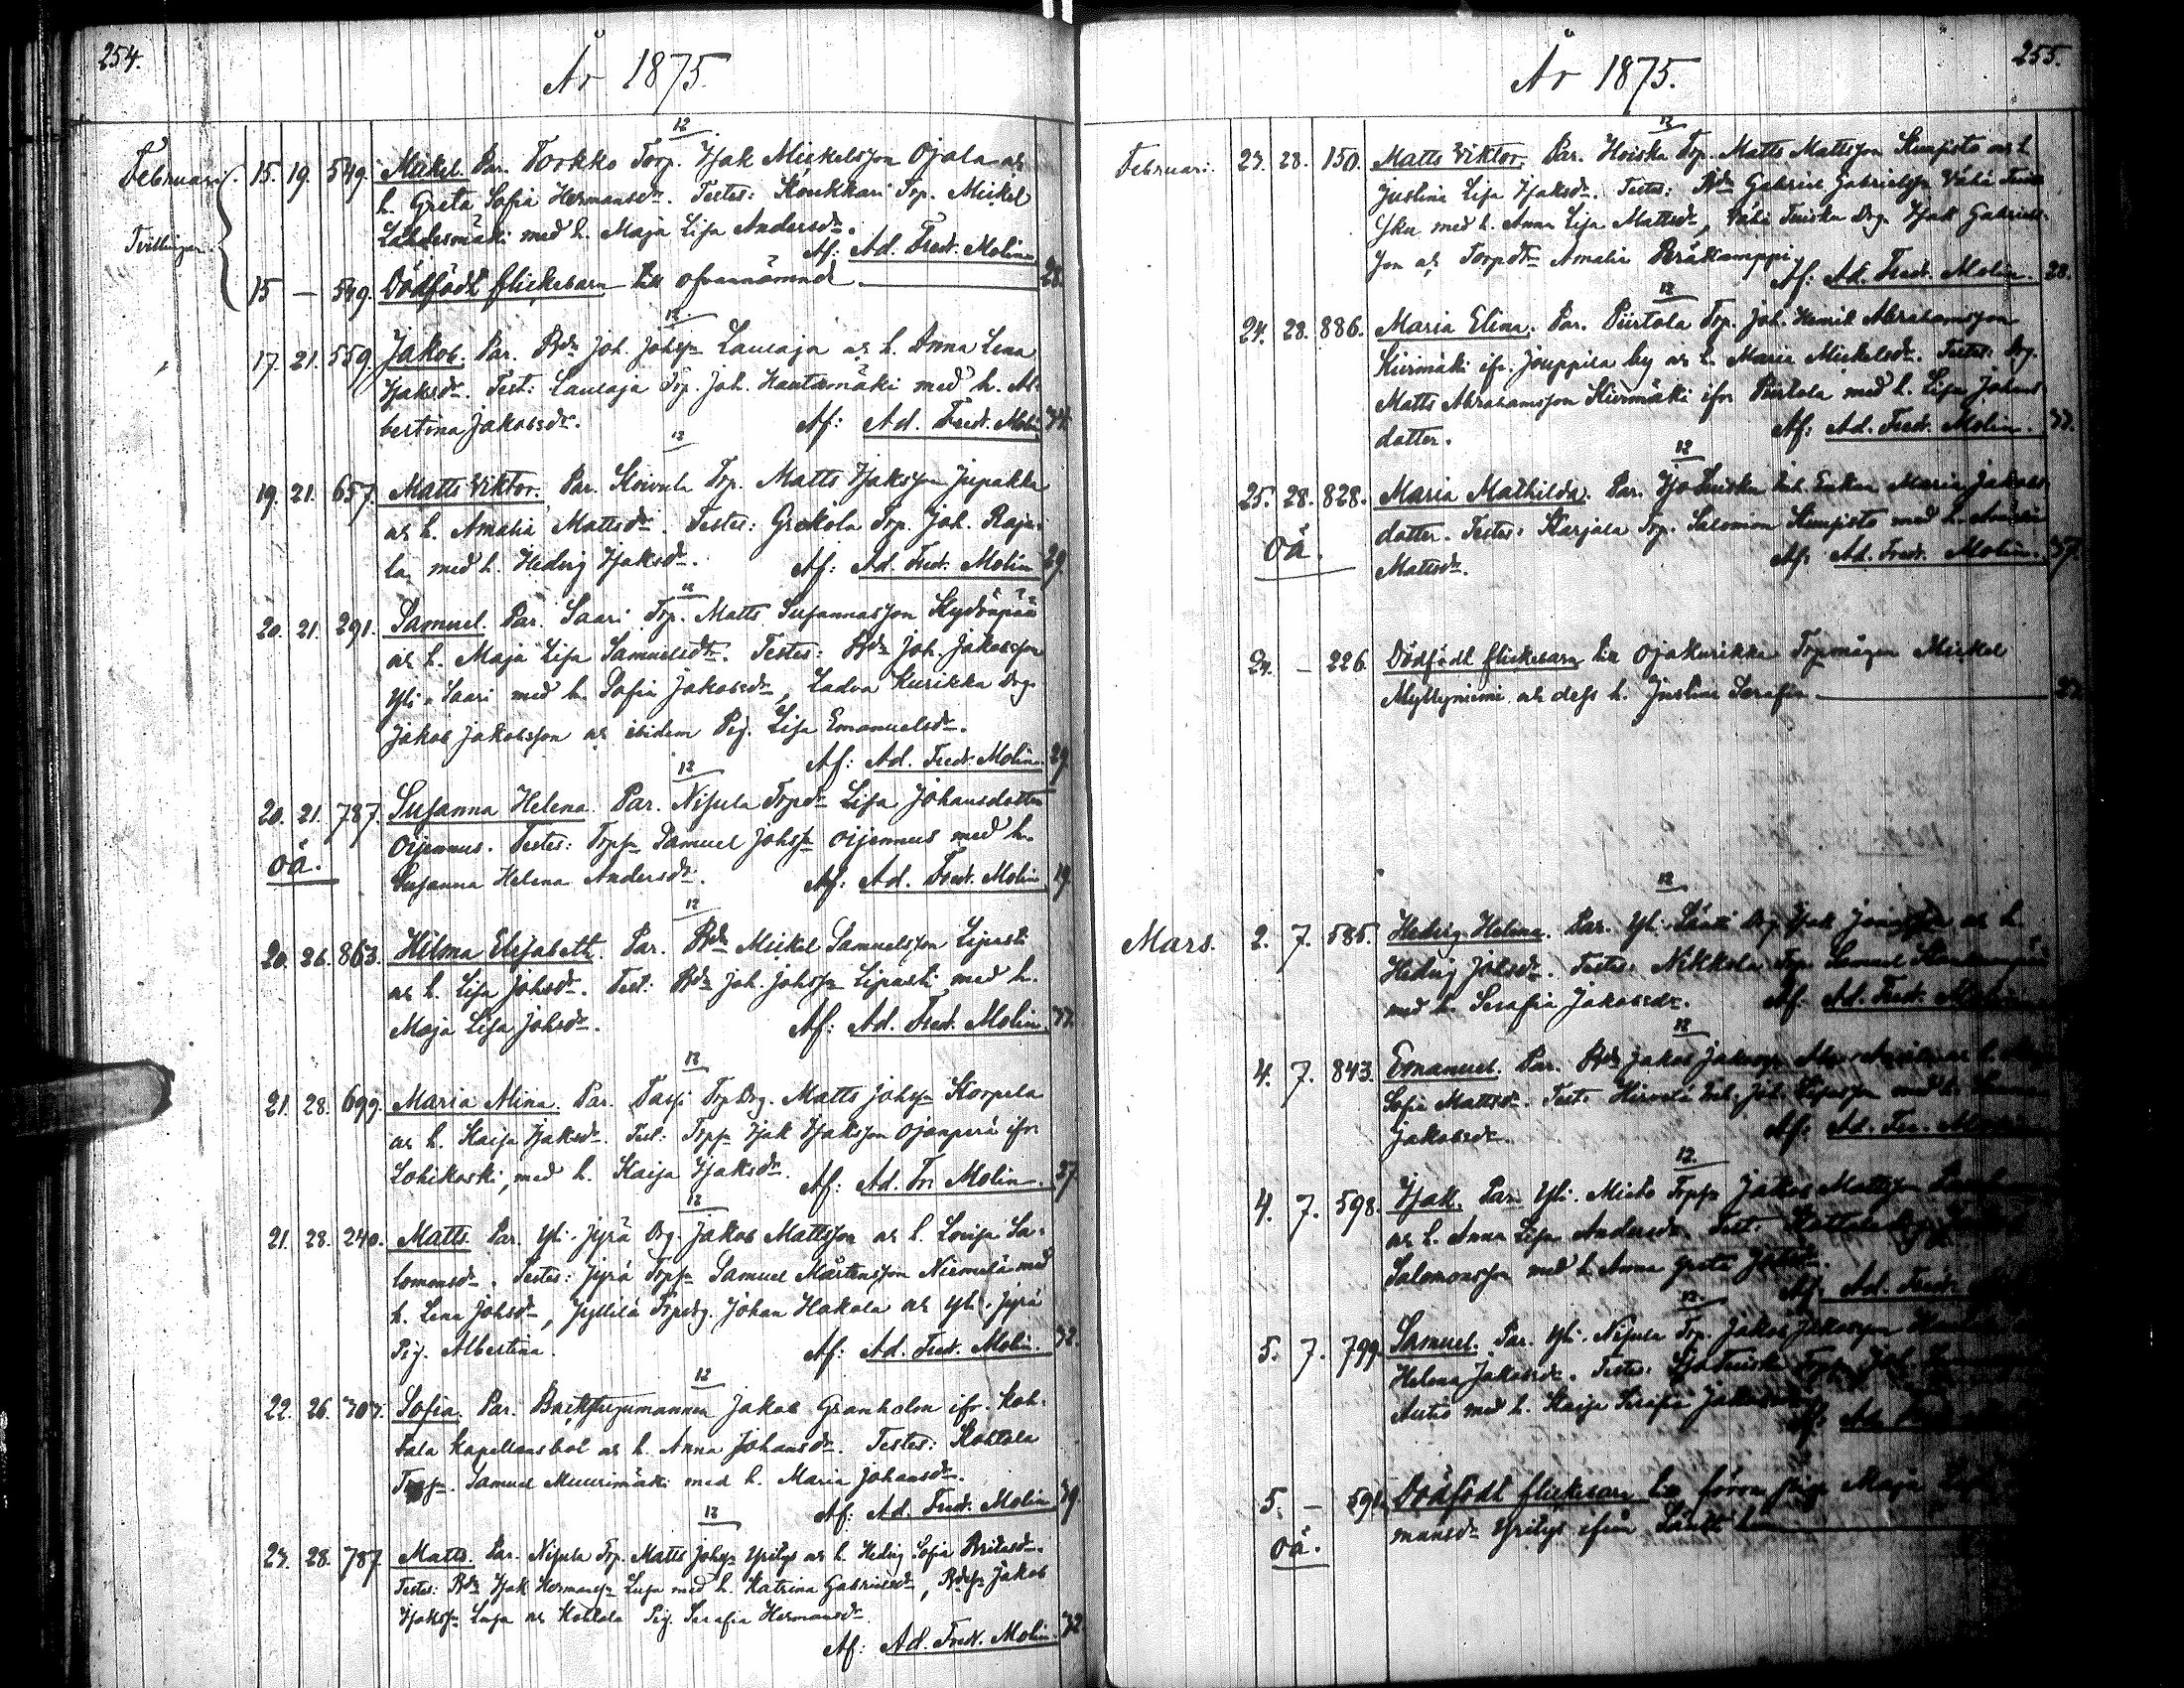 254.
År 1875.
12
Februari. 15. 19. 549. Mikel. Par. Torkko Torp. Isak Mickelsson Ojala och
h. Greta Sofia Hermansdr. Testes: Koukkari Trp. Mickel
Tvillingar
Lähdesmäki med h. Maja Lisa Andersdr.
Af: Ad. Fredr. Molin
15 — 549. Dödfödt flickebarn till ofvannämnde. 28.
12
17. 21. 559. Jakob. Par. Bdn Joh. Johss. Laulaja och h. Anna Lena
Isaksdr. Test: Laulaja Trp. Joh. Hautamäki med h. Al-
bertina Jakobsdr. Af: Ad. Fredr. Molin 34.
12
19. 21. 657. Matts Viktor. Par. Koivula Trp. Matts Isaksson Jupakka
och h. Amalia Mattsdr. Testes: Grekola Trp. Joh. Raja-
la, med h. Hedvig Isaksdr. Af: Ad. Fredr. Molin 29.
12
20. 21. 291. Samuel. Par. Saari Trp. Matts Susannasson Kydönpää
och h. Maja Lisa Samuelsdr. Testes: Bdn Joh. Jakobsson
Yli-Saari med h. Sofia Jakobsdr, Ladva Kurikka Drg.
Jakob Jakobsson och ibidem Pig. Lisa Emanuelsdr.
Af: Ad. Fredr. Molin. 29.
12
20. 21. 787. Susanna Helena. Par. Nisula Trpdr Lisa Johansdotter
Oijennus. Testes: Trpss. Samuel Johss. Oijennus med h.
oä.
Susanna Helena Andersdr. Af: Ad. Fredr. Molin 19.
12
20. 26. 863. Hilma Elisabeth. Par. Bdn Mickel Samuelsson Lipasti
och h. Lisa Johsdr. Test: Bdn Joh. Johss. Lipasti med h.
Maja Lisa Johsdr. Af: Ad. Fredr. Molin. 33.
12
21. 28. 699. Maria Mina. Par. Passi Trp Drg. Matts Johss. Korpela
och h. Kaisa Isaksdr. Test: Trpss. Isak Isaksson Ojanperä ifr.
Lohikoski, med h. Kaisa Isaksdr. Af: Ad. Fr. Molin. 37
12
21. 28. 240. Matts. Par. Yli-Jyrä Drg. Jakob Mattsson och h. Lovisa Sa-
lomonsdr. Testes: Jyrä Trpss. Samuel Mårtensson Niemelä med
h. Lena Johsdr, Jyllilä Trpdrg. Johan Hakala och Yli-Jyrä
Pig. Albertina. Af: Ad. Fredr. Molin. 32.
12
22. 26. 303. Sofia. Par. Backstugumannen Jakob Granholm ifr. Koh-
tala Kapellansbol och h. Anna Johansdr. Testes: Kohtala
Trpss. Samuel Muurimäki med h. Maria Johansdr.
Af: Ad. Fredr. Molin 39.
12
23. 28. 787 Matts. Par. Nisula Trp. Matts Johss. Yrilys och h. Hedvig Sofia Britasdr.
Testes: Bdn Isak Hermanss. Luja med h. Katrina Gabrielsdr, Bdss. Jakob
Isakss. Luja och Kohtala Pig. Serafia Hermansdr.
Af: Ad. Fredr. Molin. 32
255.
År 1875.
12
Februari. 23. 28. 150. Matts Viktor. Par. Hoiska Trp. Matts Mattsson Kumpsto och h.
Justina Lisa Isaksdr. Testes: Bdn Gabriel Gabrielss. Vähä Tuis-
ku med h. Anna Lisa Mattsdr, Vähä Tuisku Drg. Isak Gabriels-
son och Torpdr Amalia Peräkamppi.
Af: Ad. Fredr. Molin. 28.
12
24. 28. 886. Maria Elina. Par. Piirtola Trp. Joh. Henrik Abrahamsson
Kiirimäki ifr. Jouppila by och h. Maria Mickelsdr. Testes: Drg.
Matts Abrahamsson Kiirimäki ifr Piirtola med h. Lisa Johans-
dotter. Af: Ad. Fredr. Molin. 33.
12
25. 28. 828. Maria Mathilda. Par. Iso Tuisku Inh. Enkan Maria Jakobs-
dotter. Testes: Karjala Trp. Salomon Kumpsto med h. Amalia
oä.
Mattsdr. Af: Ad. Fredr. Molin. 37.
24. — 226. Dödfödt flickebarn till Ojakurikka Trpmågen Mickel
Myllyniemi och dess h. Justina Serafia. 27.
12
Mars. 2. 7. 585. Hedvig Helena. Par. Yli-Säntti Drg. Isak och h.
Hedvig Johsdr. Testes: Nikkola Trp. Samuel
med h. Serafia Jakobsdr. Af: Ad. Fredr. Molin
12
4. 7. 843. Emanuel. Par. Bdn Jakob Jakobss. och h.
Sofia Mattsdr. Test: Hirvelä Inh. Joh. med h.
Jakobsdr. Af: Ad. Fr. Molin
12.
4. 7. 598. Isak. Par. Yli-Mieto Trpss. Jakob Mattsson
och h. Anna Lisa Andersdr. Test: Drg.
Salomonsson med h. Anna Greta Johsdr.
Af: Ad. Fredr.
12.
5. 7. 799. Samuel. Par. Yli-Nisula Trp. Jakob Jakobsson
Helena Jakobsdr. Testes: Iso Tuisku Trpss. Joh.
Autio med h. Kaisa Serafia Jakobsdr.
Af: Ad.
5. — 591. Dödfödt flickebarn till förra pigan Maja
oä.
mansdr Yrilys ifrån Säntti